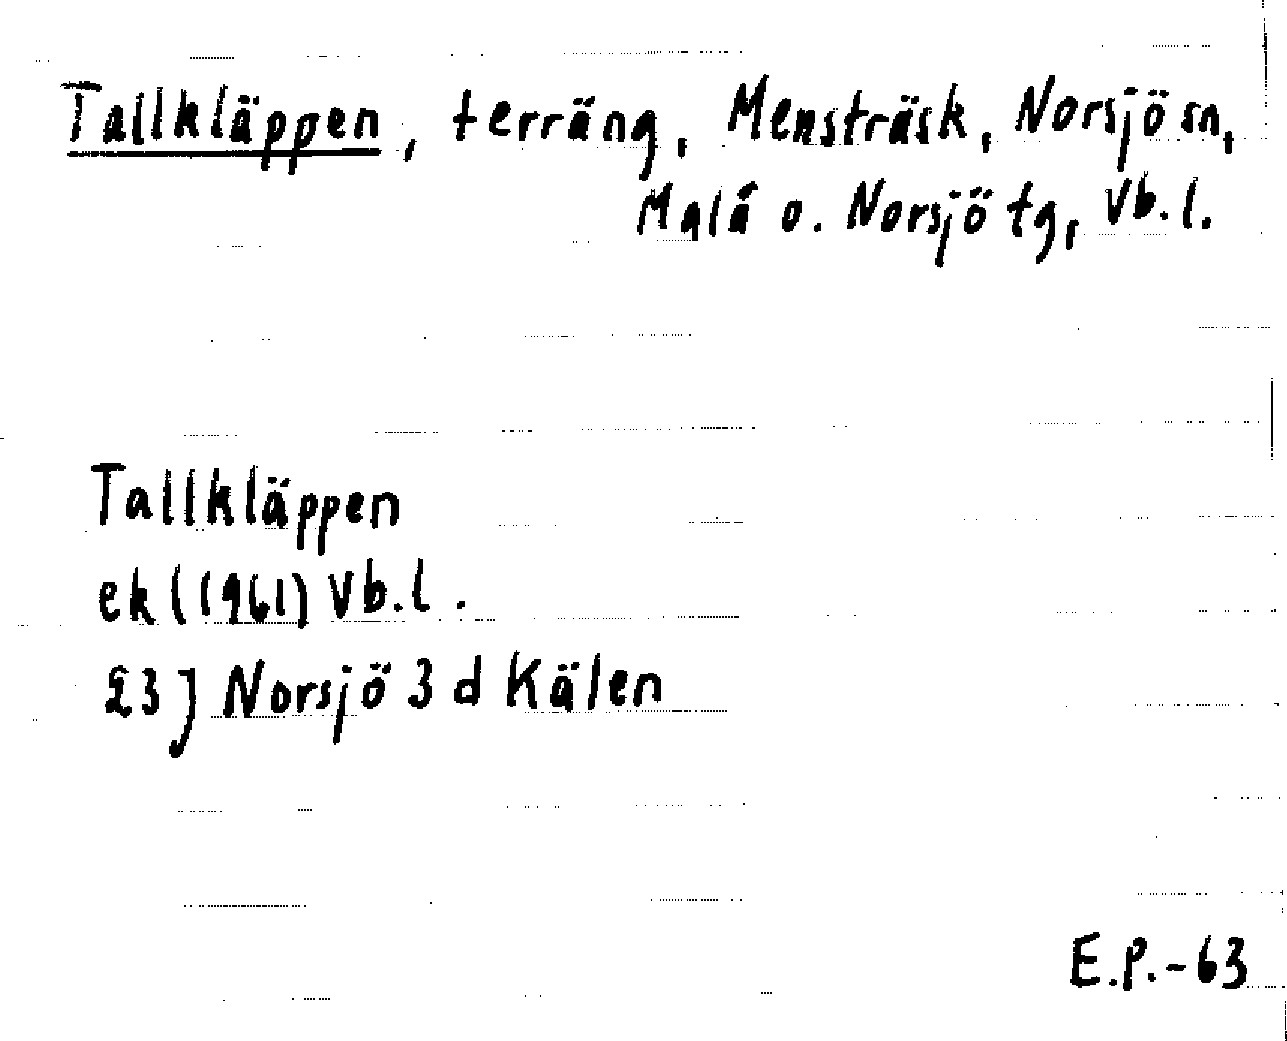 Tallkläppen, terräng, Mensträsk, Norsjö sn,
Malå o. Norsjö tg, Vb.l.
Tallkläppen
ekl (1961) Vb.l.
23J Norsjö 3 d Kälen
E.P.-63